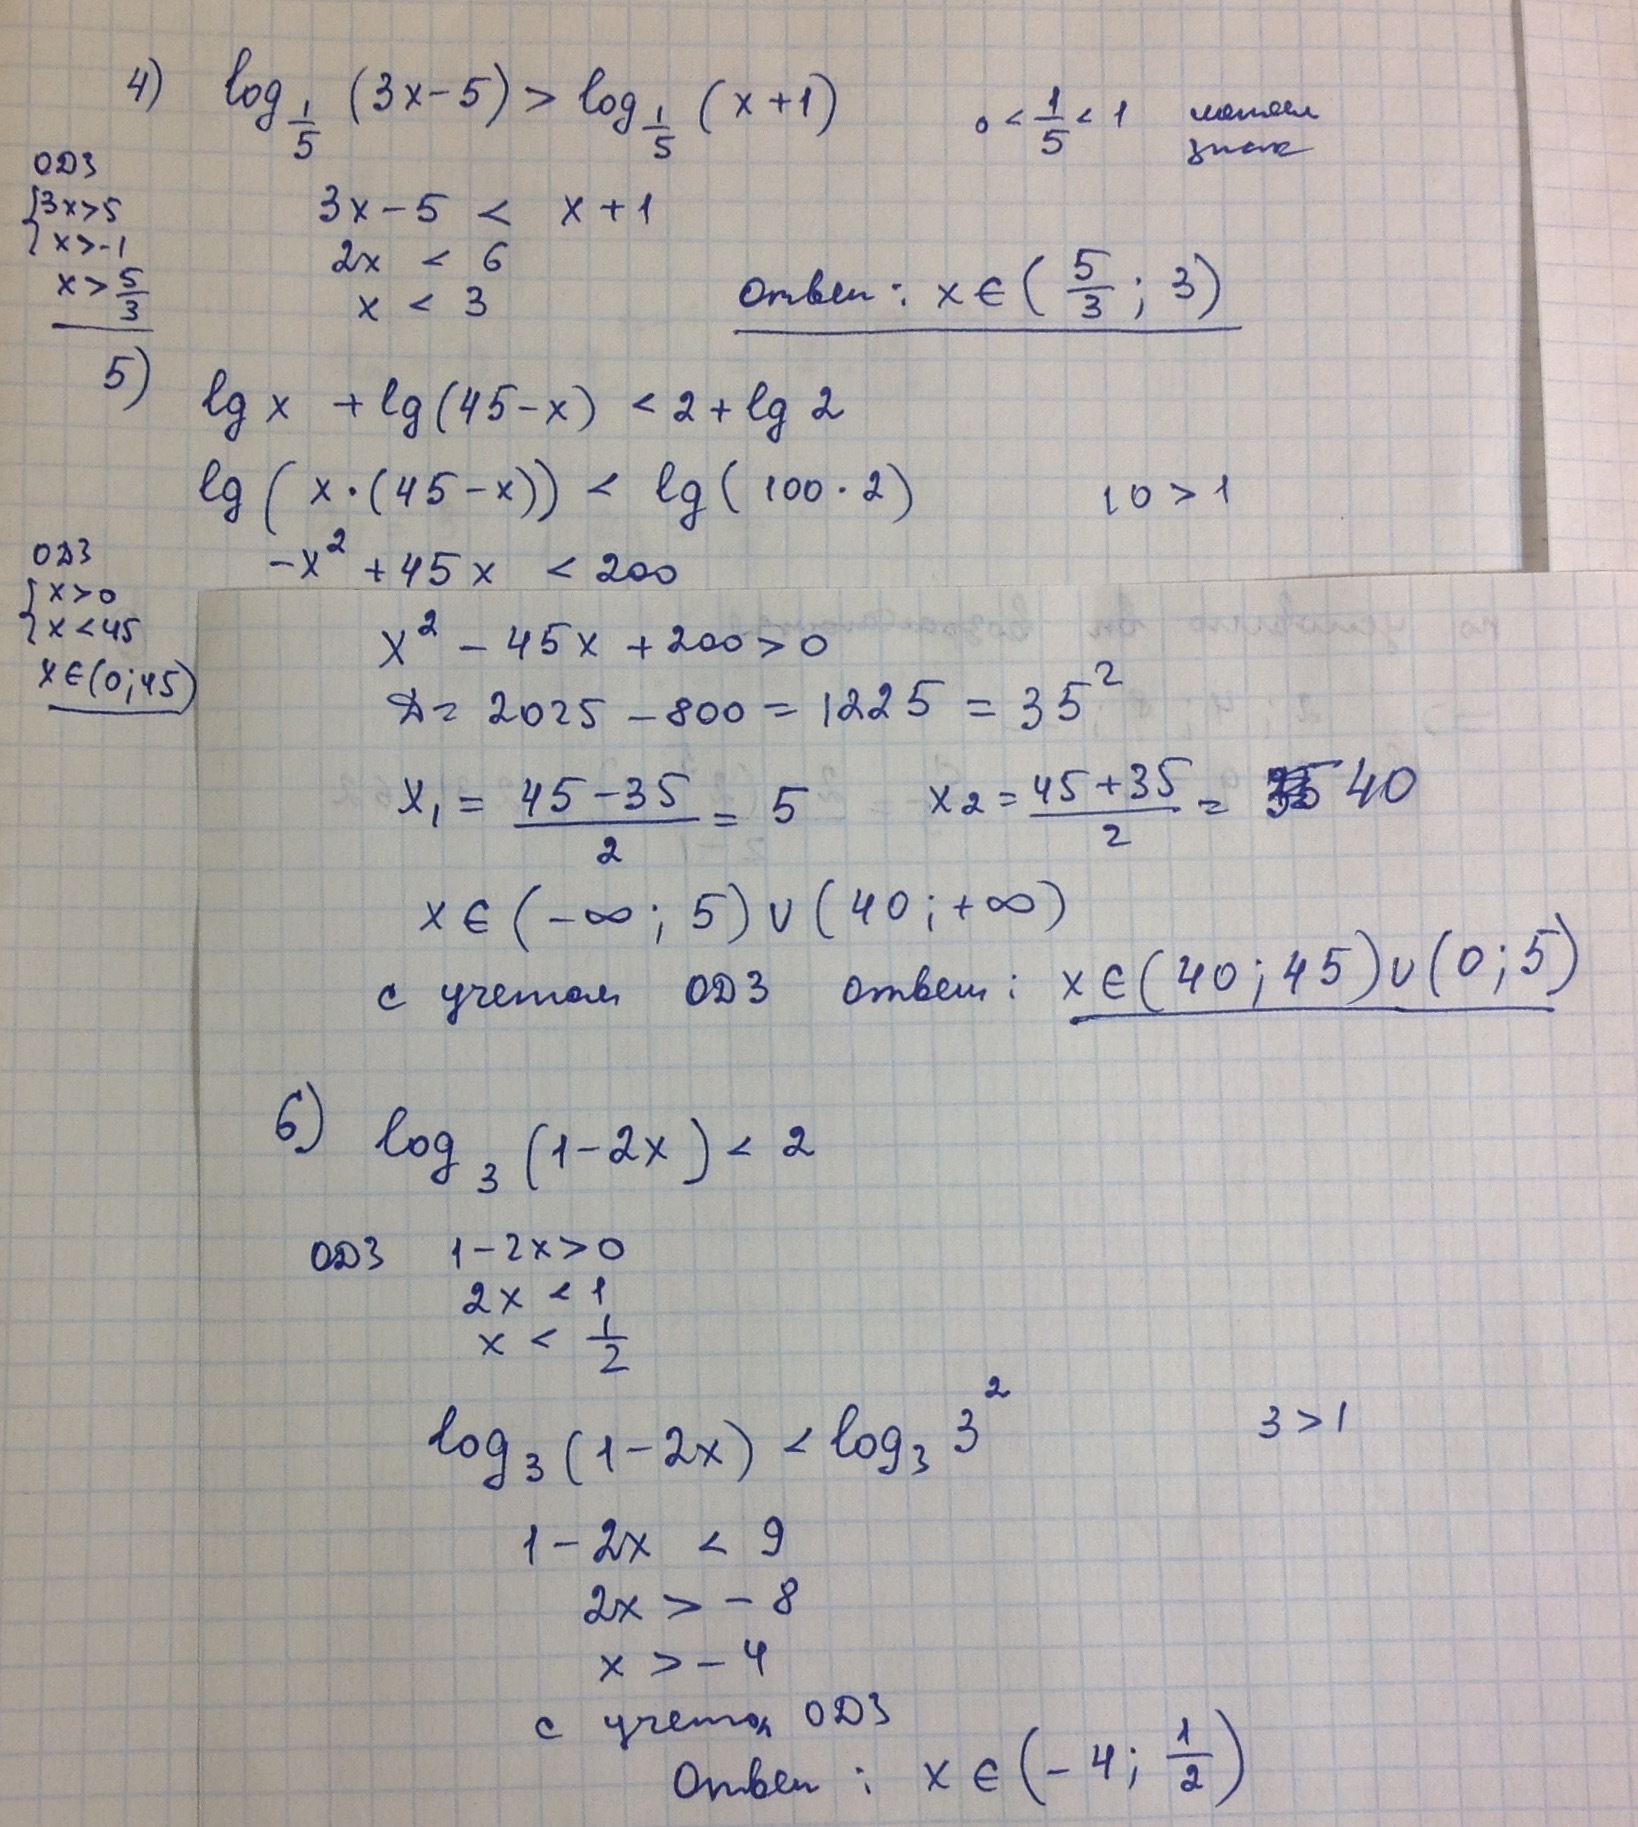 4) log_{1/5} (3x-5) > log_{1/5} (x+1) 0 < 1/5 < 1 меняем знак
ОДЗ
{3x>5
x>-1
x > 5/3
3x-5 < x+1
2x < 6
x < 3
Ответ: x ∈ (5/3; 3)
5) lg x + lg(45-x) < 2 + lg 2
lg(x·(45-x)) < lg(100·2) 10 > 1
-x² + 45x < 200
ОДЗ
{x>0
x<45
x∈(0;45)
x² - 45x + 200 > 0
D = 2025 - 800 = 1225 = 35²
x₁ = (45-35)/2 = 5 x₂ = (45+35)/2 = 40
x ∈ (-∞; 5) ∪ (40; +∞)
с учетом ОДЗ ответ: x ∈ (40; 45) ∪ (0; 5)
6) log₃ (1-2x) < 2
ОДЗ 1-2x > 0
2x < 1
x < 1/2
log₃ (1-2x) < log₃ 3² 3 > 1
1-2x < 9
2x > -8
x > -4
с учетом ОДЗ
Ответ: x ∈ (-4; 1/2)